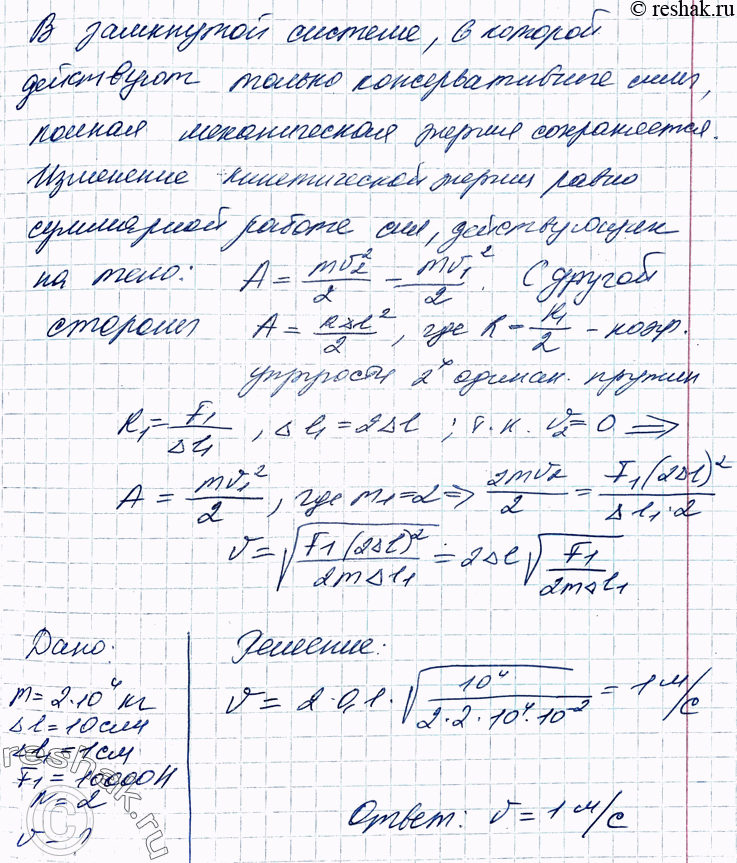 © reshak.ru
В замкнутой системе, в которой
действуют только консервативные силы,
полная механическая энергия сохраняется.
Изменение кинетической энергии равно
суммарной работе сил, действующих
на тело: A = mv₂²/2 - mv₁²/2. С другой
стороны A = kΔl²/2, где k = k₁/2 - коэф.
упругости 2ˣ одинак. пружин
k₁ = F₁/Δl₁, Δl₁ = 2Δl ; т.к. v₂ = 0 ⇒
A = mv₁²/2, где m₁ = 2 ⇒ 2mv²/2 = F₁(2Δl)²/Δl₁·2
v = √(F₁(2Δl)²/2mΔl₁) = 2Δl √(F₁/2mΔl₁)
Дано: Решение:
m = 2·10⁴ кг
v = 2·0,1·√(10⁴/2·2·10⁴·10⁻²) = 1 м/с
Δl = 10 см
Δl₁ = 1 см
F₁ = 10000 Н
N = 2
v - ?
Ответ: v = 1 м/с
© reshak.ru